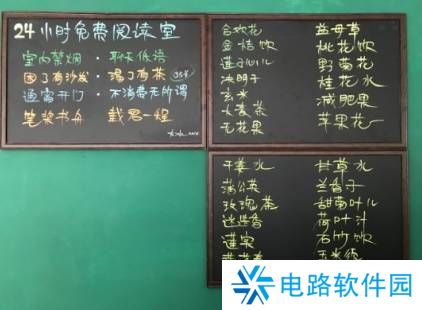 24小时免费阅读室
室内禁烟·聊天低语
困了有沙发·渴了有茶
通宵开门·不消费无所谓
笔桨书舟 载君一程
合欢花 益母草
金桔饮 桃花饮
莲子心儿 野菊花
决明子 桂花水
玄米 减肥果
大麦茶 苹果花
无花果
干姜水 甘草水
蒲公英 兰香子
玫瑰茶 甜南叶儿
迷迭香 荷叶汁
莲实 石竹饮
玉米须
电路软件园